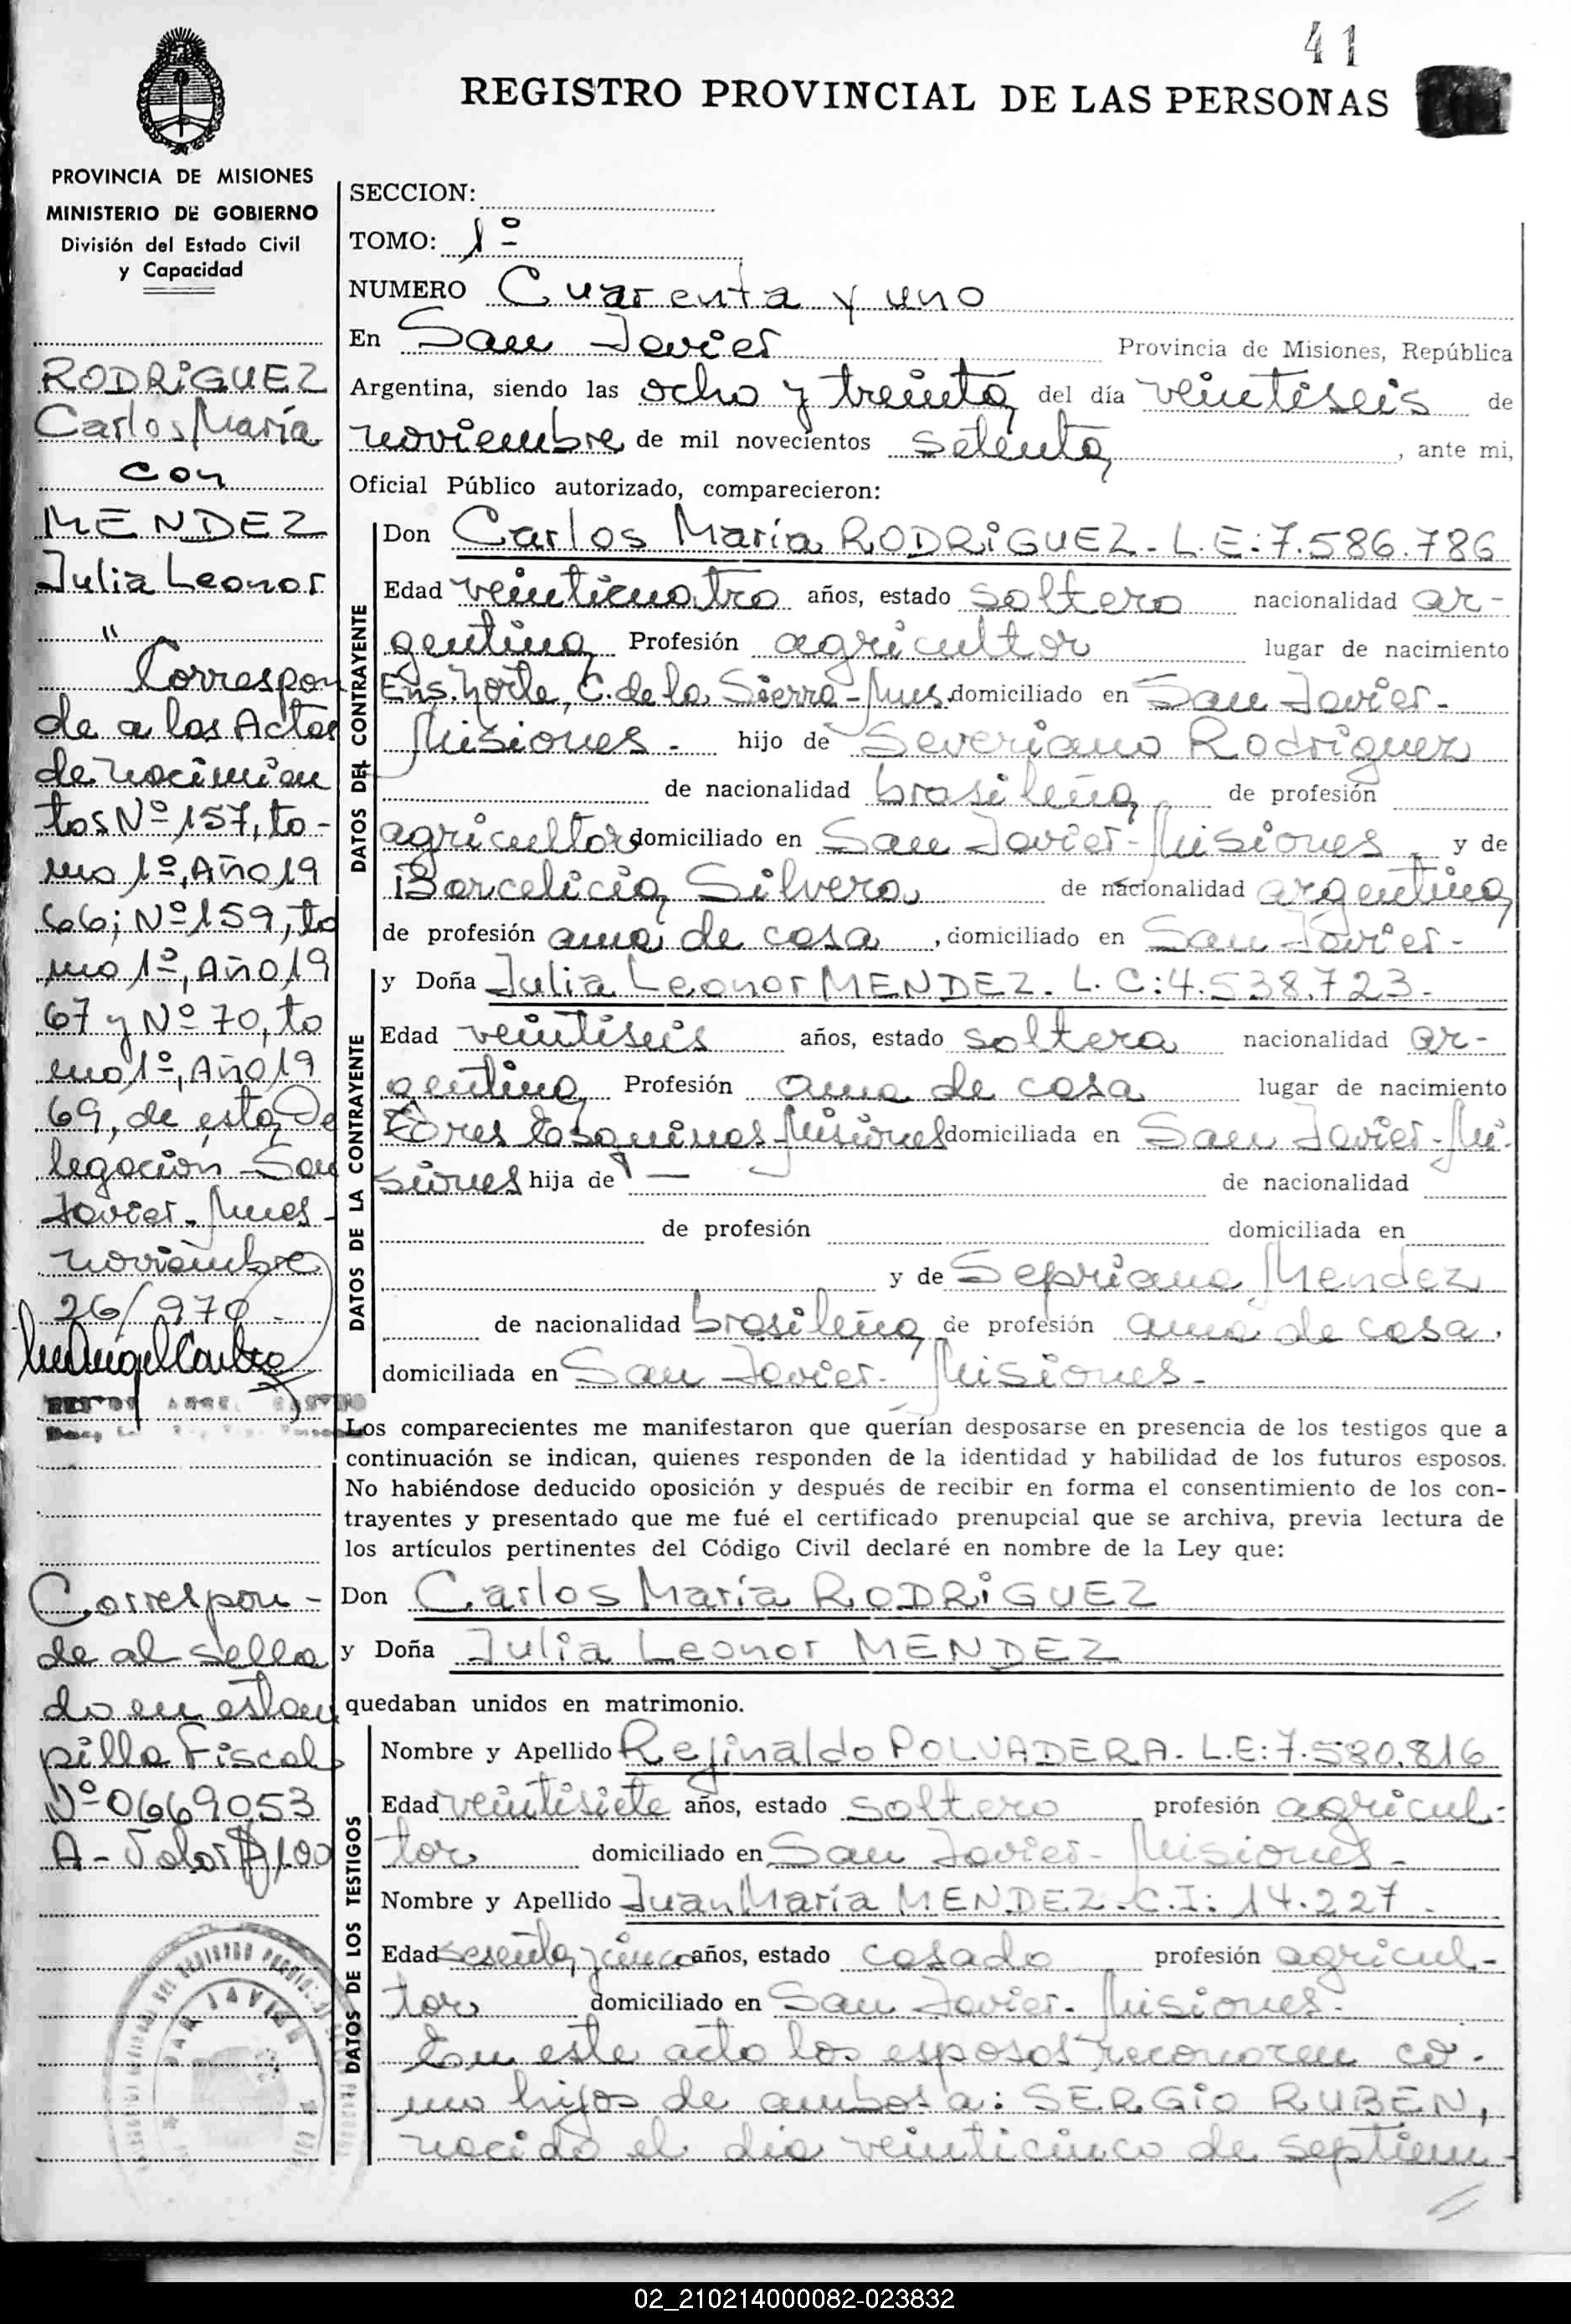 41
REGISTRO PROVINCIAL DE LAS PERSONAS
PROVINCIA DE MISIONES
MINISTERIO DE GOBIERNO
División del Estado Civil
y Capacidad
RODRiGUEZ
Carlos María
con
MENDEZ
Julia Leonor
"
Correspon
de a las Actas
de nacimien
tos Nº 157, to-
mo 1º, Año 19
66; Nº 159, to
mo 1º, Año 19
67 y Nº 70, to
mo 1º, Año 19
69, de esta De
legación San
Javier - Mnes -
noviembre
26/970.
Correspon-
de al sella
do en estam
pilla Fiscal
Nº 0669053
A - Valor $ 1,00
SAN JAVIER
SECCION:
TOMO: 1º
NUMERO Cuarenta y uno
En San Javier Provincia de Misiones, República
Argentina, siendo las ocho y treinta del día veintiseis de
noviembre de mil novecientos setenta, ante mi,
Oficial Público autorizado, comparecieron:
DATOS DEL CONTRAYENTE
Don Carlos María RODRiGUEZ - L.E: 7.586.786
Edad veinticuatro años, estado soltero nacionalidad ar-
gentina Profesión agricultor lugar de nacimiento
Ens. Norte, C. de la Sierra - Mnes. domiciliado en San Javier -
Misiones - hijo de Severiano Rodriguez
de nacionalidad brasileña, de profesión
agricultor domiciliado en San Javier - Misiones y de
Barcelicia Silvera de nacionalidad argentina
de profesión ama de casa, domiciliado en San Javier -
DATOS DE LA CONTRAYENTE
y Doña Julia Leonor MENDEZ. L. C: 4.538.723-
Edad veintiseis años, estado soltera nacionalidad ar-
gentina Profesión ama de casa lugar de nacimiento
Tres Esquinas - Misiones domiciliada en San Javier - Mi-
siones hija de — de nacionalidad
de profesión domiciliada en
y de Sepriana Mendez
de nacionalidad brasileña de profesión ama de casa,
domiciliada en San Javier - Misiones -
Los comparecientes me manifestaron que querían desposarse en presencia de los testigos que a
continuación se indican, quienes responden de la identidad y habilidad de los futuros esposos.
No habiéndose deducido oposición y después de recibir en forma el consentimiento de los con-
trayentes y presentado que me fué el certificado prenupcial que se archiva, previa lectura de
los artículos pertinentes del Código Civil declaré en nombre de la Ley que:
Don Carlos María RODRiGUEZ
y Doña Julia Leonor MENDEZ
quedaban unidos en matrimonio.
DATOS DE LOS TESTIGOS
Nombre y Apellido Rejinaldo POLVADERA - L.E: 7.580.816
Edad veintisiete años, estado soltero profesión agricul-
tor domiciliado en San Javier - Misiones -
Nombre y Apellido Juan María MENDEZ - C.I: 14.227 -
Edad sesenta y cinco años, estado casado profesión agricul-
tor domiciliado en San Javier - Misiones -
En este acto los esposos reconocen co-
mo hijos de ambos a: SERGiO RUBEN,
nacido el dia veinticinco de septiem-
02_210214000082-023832